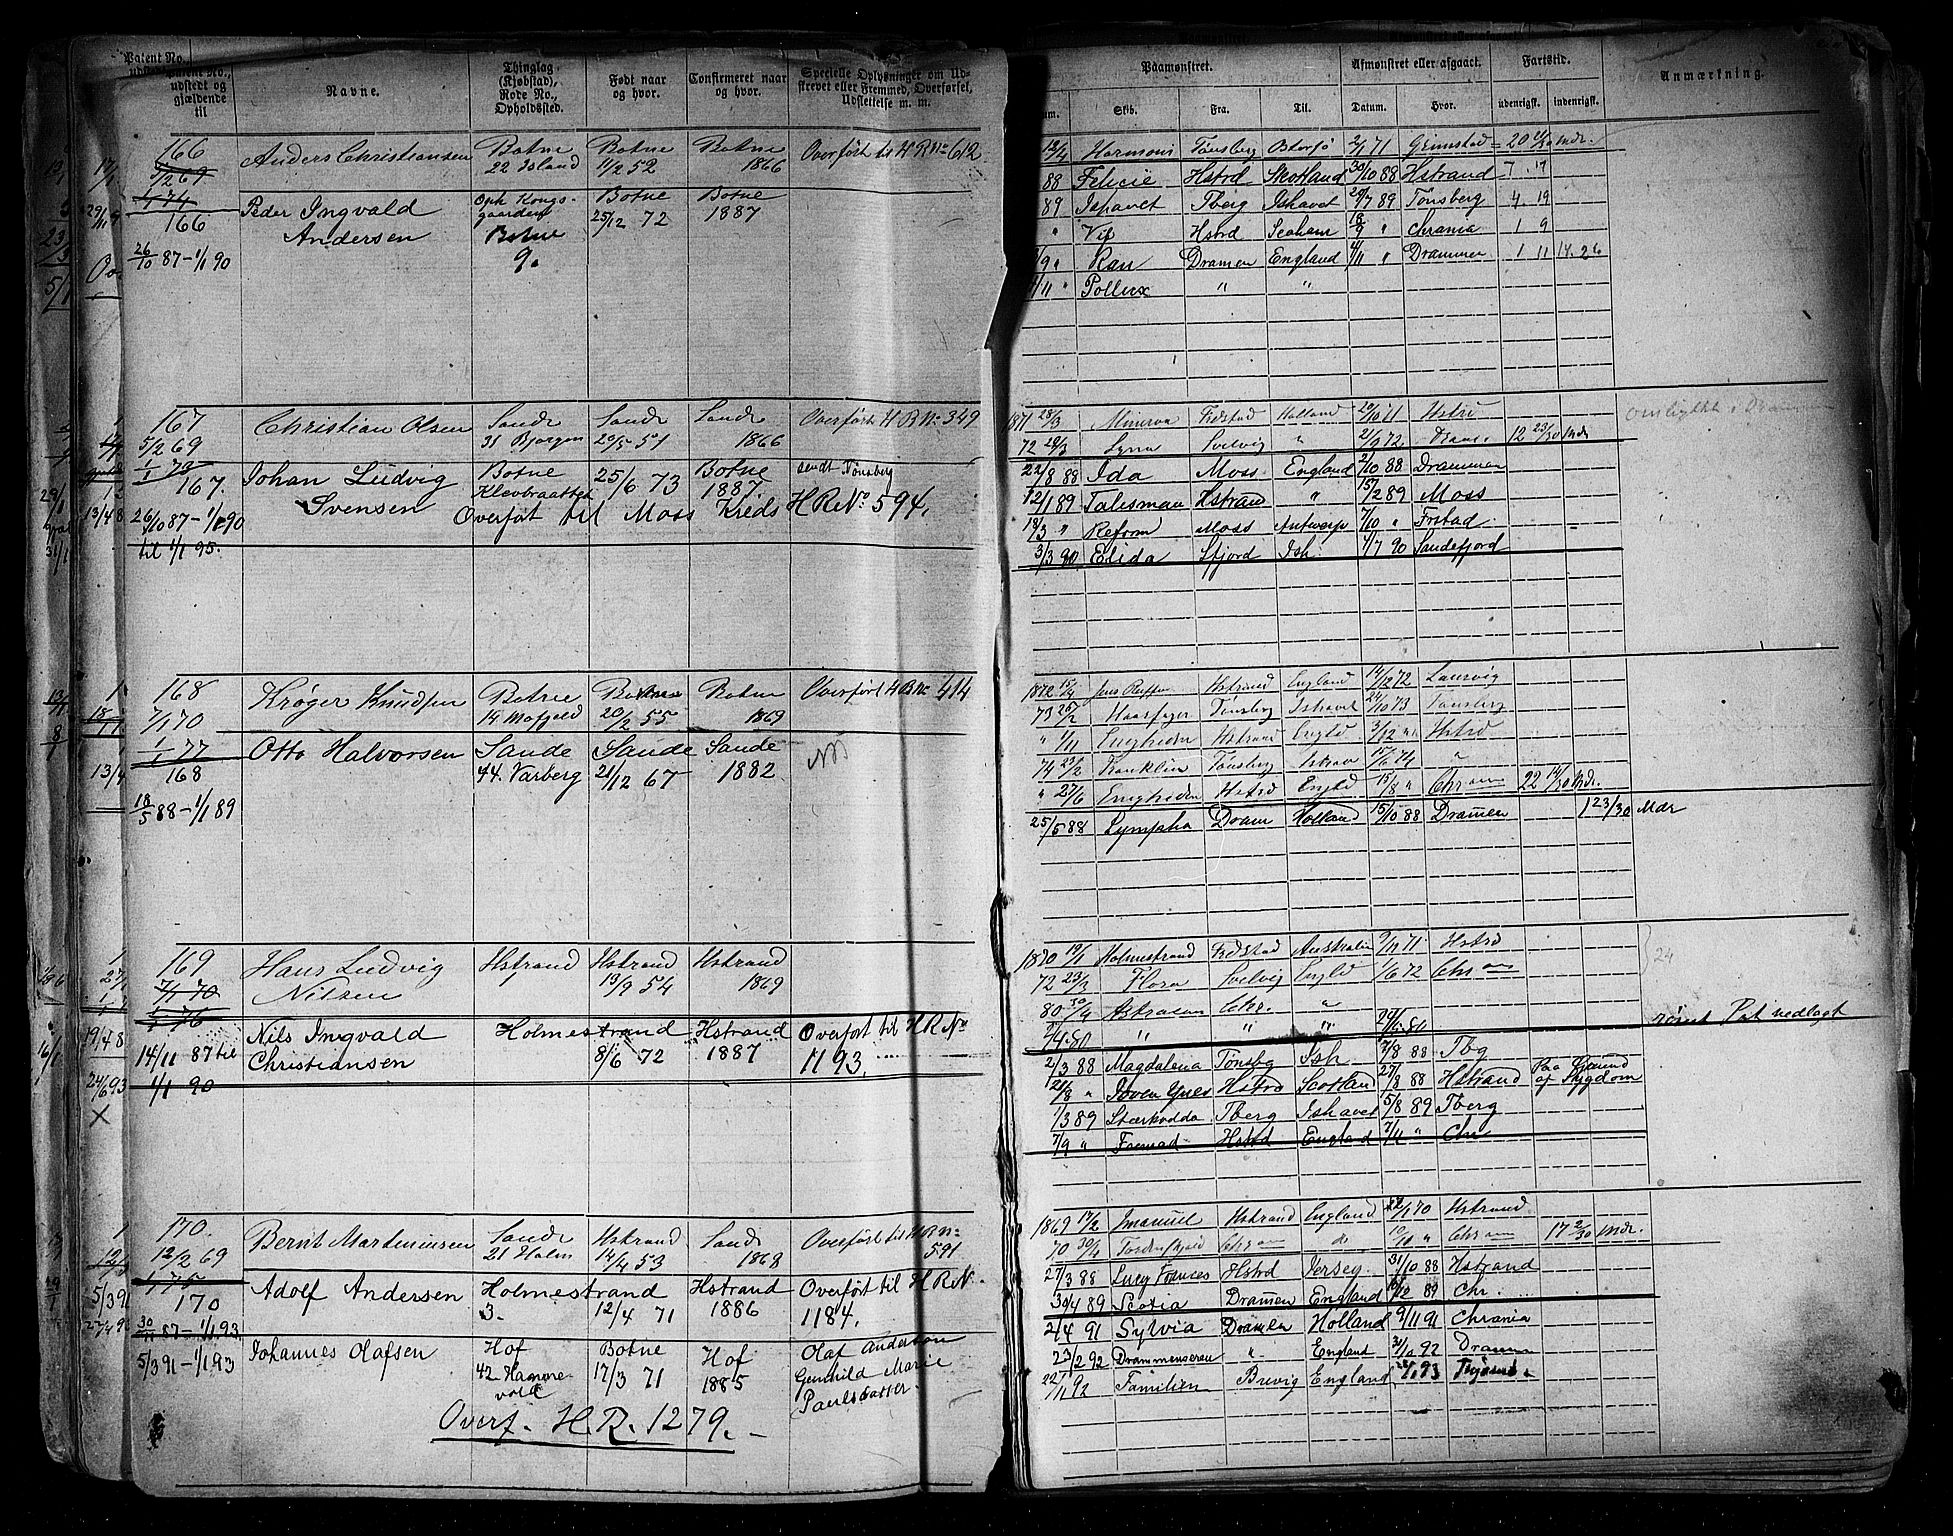 Patent No., udstedt og gjældende til
Navne.
Thinglag (Kjøbstad), Rode No., Opholdssted.
Født naar og hvor.
Confirmeret naar og hvor.
Specielle Oplysninger om Udstrevet eller Fremmed, Overførsel, Udslettelse m. m.
Paamønstret.
Skib.
Fra.
Til.
Afmønstret eller afgaaet.
Datum.
Hvor.
Fartstid.
udenrigsk.
indenrigsk.
Anmærkning.
166 Anders Christiansen Botne Botne Botne Overført til H R No 612
5/2 69 22 Island 11/2 52 1866
1/1 74
Peder Ingvald Oph Kongs- Botne Botne
166 Andersen gaarden 25/12 72 1887
Botne
26/10 87 – 1/1 90 9.
12/4 Harmoni Tønsberg Østersø 2/1 71 Grimstad 20 Mdr.
88 Felicie Hstrd Skotland 30/10 88 Hstrand 7 17
89 Ishavet Tberg Ishavet 20/7 89 Tønsberg 4 19
" Vif Hstrd Seaham 18/9 " Chrania 1 9
/9 " Ran Dramen England 4/11 " Drammen 1 11 14.26
/11 " Pollux " "
167 Christian Olsen Sande Sande Sande Overført H R No 349
5/2 69 31 Bjørgen 20/5 51 1866
1/1 73
167. Johan Ludvig Botne 25/6 73 Botne sendt Tønsberg
Svensen Klevbraatten 1887. H R No. 594.
26/10 87 – 1/1 90 Overført til Moss Kreds
til 1/1 95.
1871 28/3 Minerva Fredstad Holland 20/10 71 Hstrd
72 28/3 Svelvig " 21/9 72 Dram. 12 23/30 Mdr
22/8 88 Ida Moss England 2/10 88 Drammen
12/1 89 Talisman Hstrand " 15/2 89 Moss
18/3 " Reform Moss Antwerp 7/10 " Frstad
3/3 90 Elida Sfjord Ish. 1/7 90 Sandefjord
168 Krøger Knudsen Botne Botne Botne Overført H R No 414
7/1 70 14 Mofjeld 20/2 55 1869
1/1 77
168 Otto Halvorsen Sande Sande Sande
44. Varberg 21/12 67 1882
18/5 88 – 1/1 89
1872 15/4 Hstrand England 14/12 72 Laurvig
73 25/2 Haarfager Tønsberg Ishavet 24/10 73 Tønsberg
" 1/11 Enigheden Hstrand Engld 3/12 " Hstrd
74 23/2 Franklin Tønsberg Ishavet 15/6 74 "
" 27/6 Enigheden Hstrd Engld 15/8 " Chr 22 14/30 Mdr.
25/5 88 Lympha Dram Holland 15/10 88 Dramen 1 23/30 Mdr
169 Hans Ludvig Hstrand Hstrand Hstrand
7/1 70 Nilsen 19/9 54 1869
1/1 76
Nils Ingvald Holmestrand Hstrand Overført til H R No
14/11 87 til Christiansen 8/6 72 1887 1193.
1/1 90
1870 19/1 Holmestrand Fredstad Australien 9/12 71 Hstrd
72 23/3 Flora Svelvig Engld 1/6 72 Chr
24
80 30/4 Astracan Chr. "
" " "
Pat vedlagt
2/3 88 Magdalena Tønsbg Ish 7/8 88 Tbg
21/8 " Hstrd Scotland 27/8 88 Hstrand Paa Grund af Sygdom
1/3 89 Stærkodda Tberg Ishavet 5/8 89 Tberg
7/9 " Fremad Hstrd England 7/4 " Chr
170. Bernt Marteniusen Sande Hstrand Sande Overført til H R No
12/2 69 21 Holm 14/4 53 1868 591
1/1 75
170 Adolf Andersen Holmestrand Hstrand Overført til H R N.
3. 12/4 71 1886 1184.
30/11 87 – 1/1 93.
5/3 91 – 1/1 93 Johannes Olafsen Hof Botne Hof Olaf Anderson
42 Hammervold 17/3 71 1885 Gunhild Marie
Paulsdatter.
Overf. H. R. 1279.
1869 17/2 Imanuel Hstrand England 1/1 70 Hstrand
70 30/4 Tordenskjold Chr do " Chr 17 2/30 Mdr.
27/3 88 Lucy Frances Hstrd Jersey 31/10 88 Hstrand
30/4 89 Scotia Dramen England 10/12 89 Chr.
2/4 91 Sylvia Dramen Holland 9/11 91 Chrania
23/2 92 Drammenseren " England 31/10 92 Dramen
22/11 92 Familien Brevig England 93